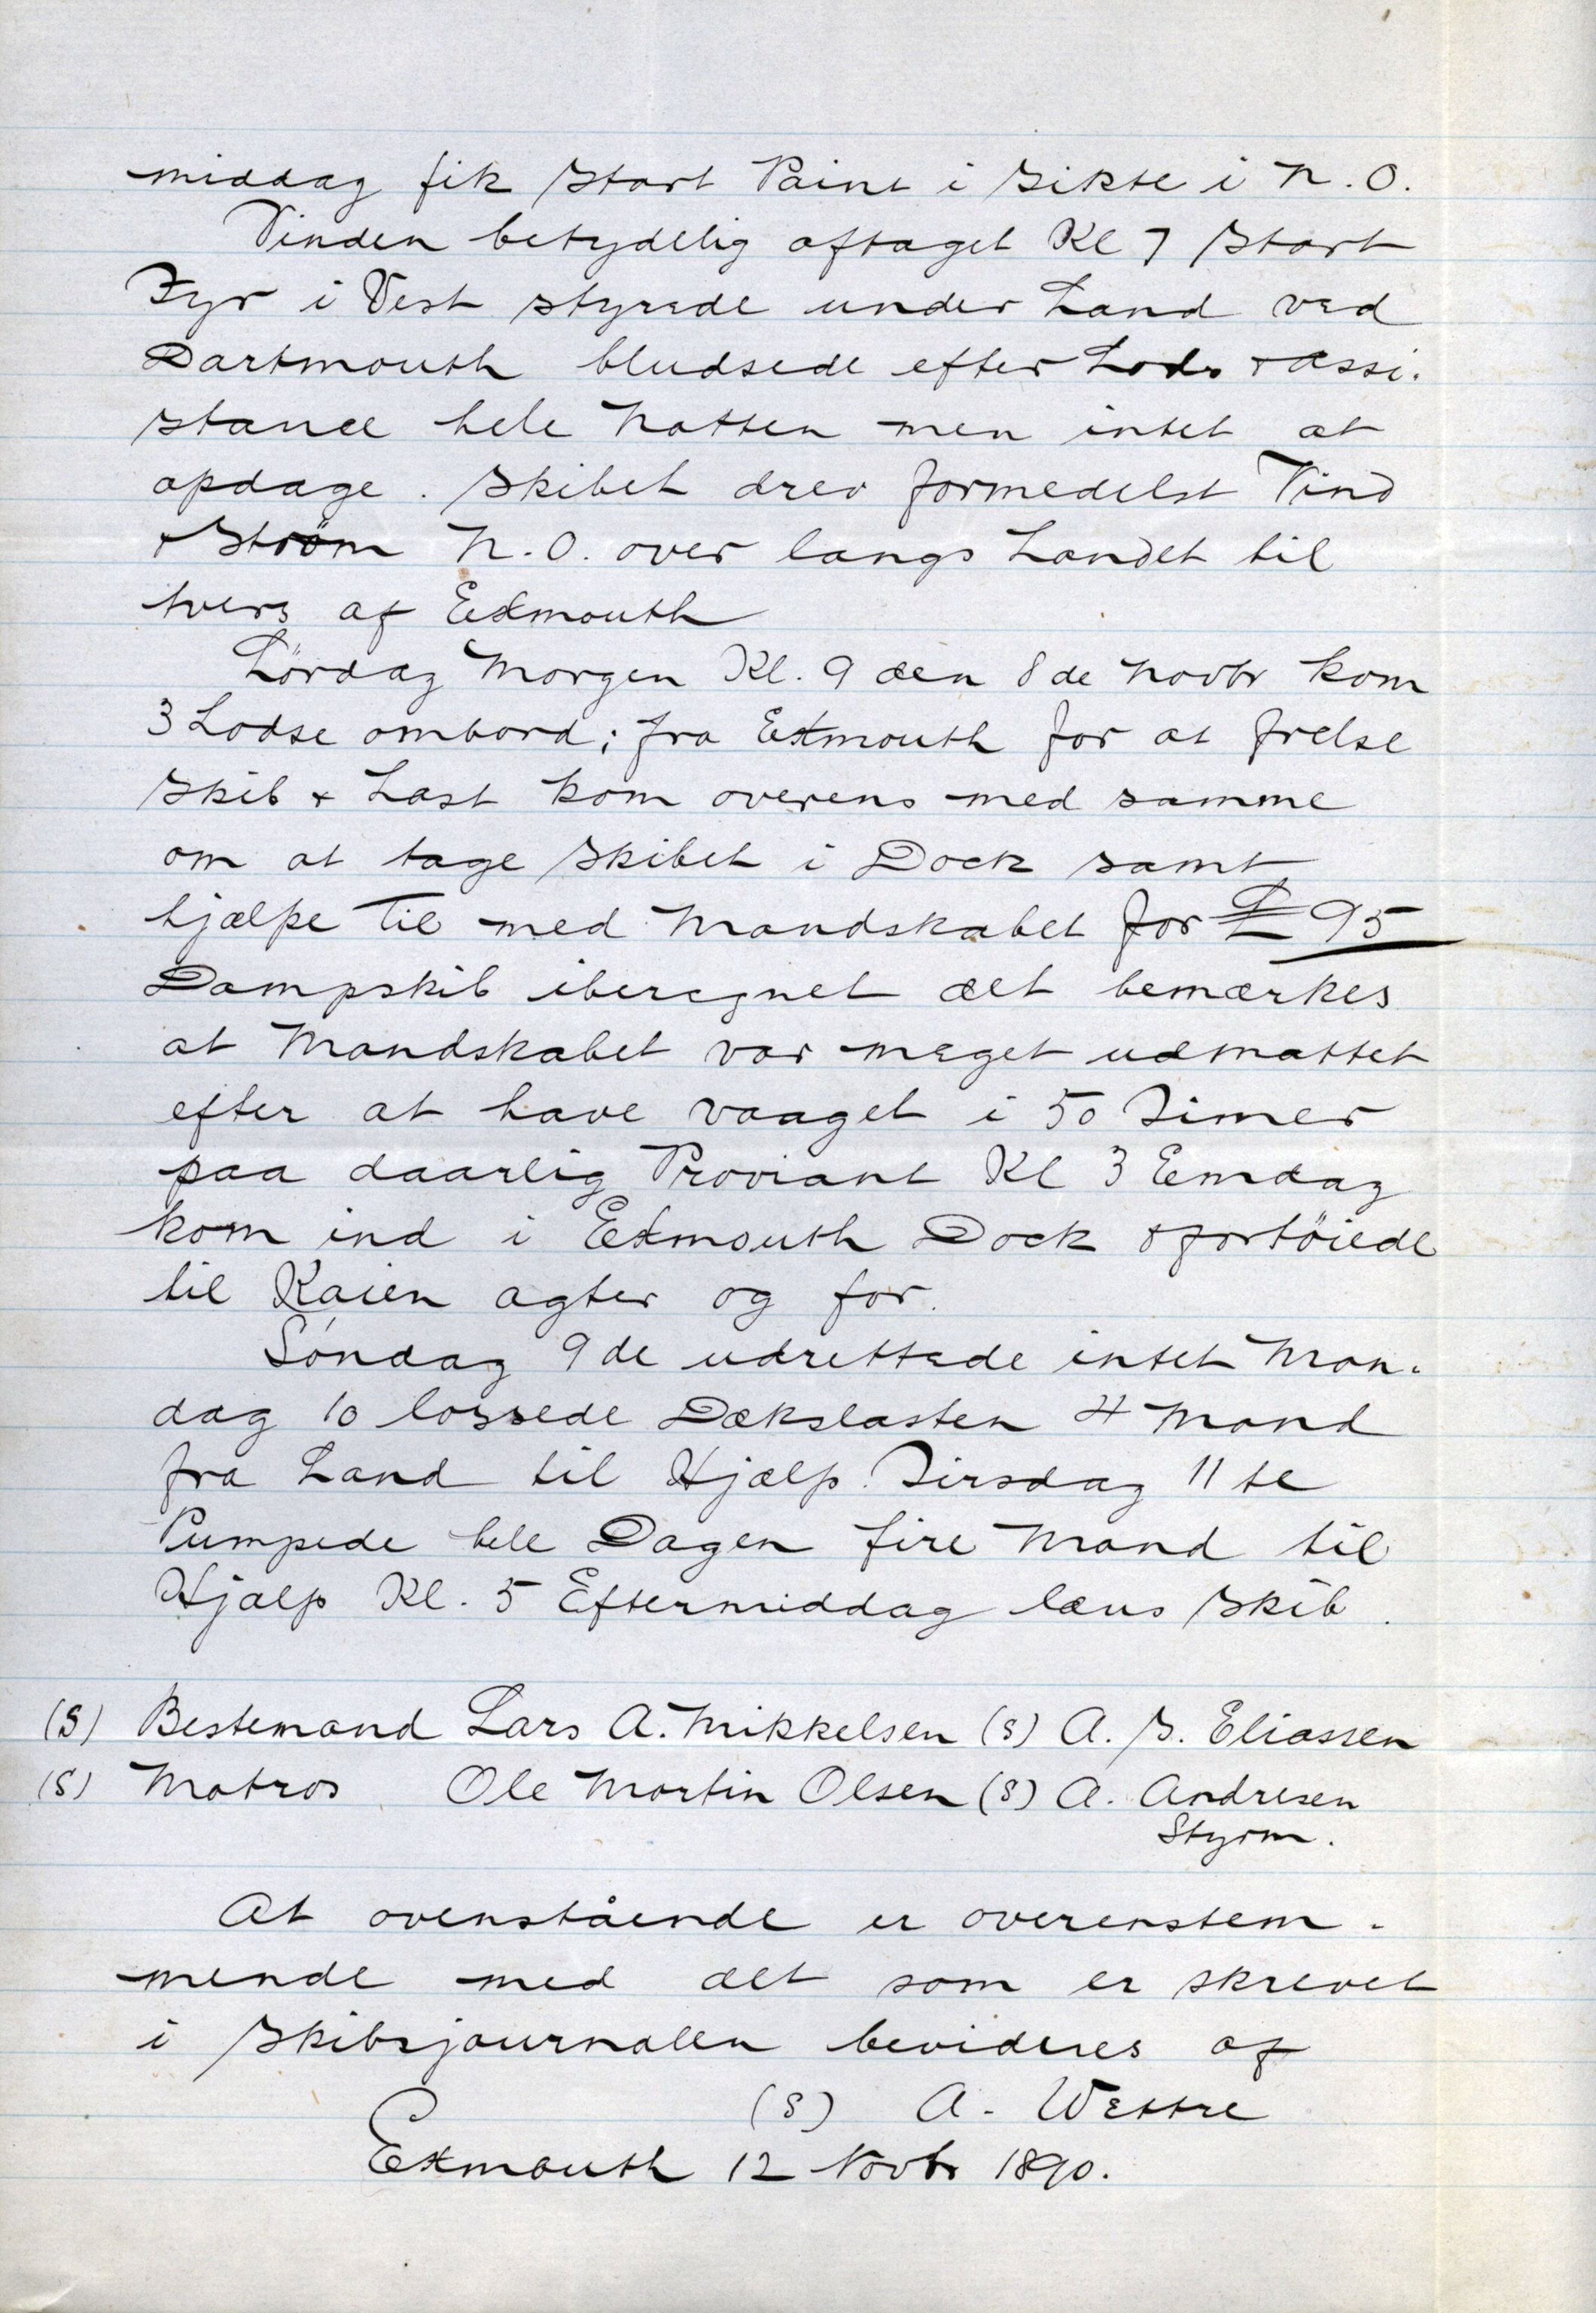 middag fik Start Point i Sikte i N.O.
Vinden betydelig aftaget Kl 7 Start
Fyr i Vest styrede under Land ved
Dartmouth bludsede efter Lods & Assi-
stance hele Natten men intet at
opdage. Skibet drev formedelst Vind
& Ström N.O. over langs Landet til
tvers af Exmouth
Lördag Morgen Kl. 9 den 8de Novbr kom
3 Lodse ombord; fra Exmouth for at frelse
Skib & Last kom overens med samme
om at tage Skibet i Dock samt
hjælpe til med Mandskabet for £95
Dampskib iberegnet det bemærkes
at Mandskabet var meget udmattet
efter at have vaaget i 50 Timer
paa daarlig Proviant Kl 3 Emdag
kom ind i Exmouth Dock & fortöiede
til Kaien agter og for.
Söndag 9de udrettede intet Man-
dag 10 lossede Dækslasten 4 Mand
fra Land til Hjælp. Tirsdag 11te
Pumpede hele Dagen fire Mand til
Hjælp Kl. 5 Eftermiddag læns Skib.
(S) Bestemand Lars A. Mikkelsen (S) A. S. Eliassen
(S) Matros Ole Martin Olsen (S) A. Andresen
Styrm.
At ovenstående er overenstem-
mende med det som er skrevet
i Skibsjournalen bevidnes af
(S) A. Wettre
Exmouth 12 Novbr 1890.